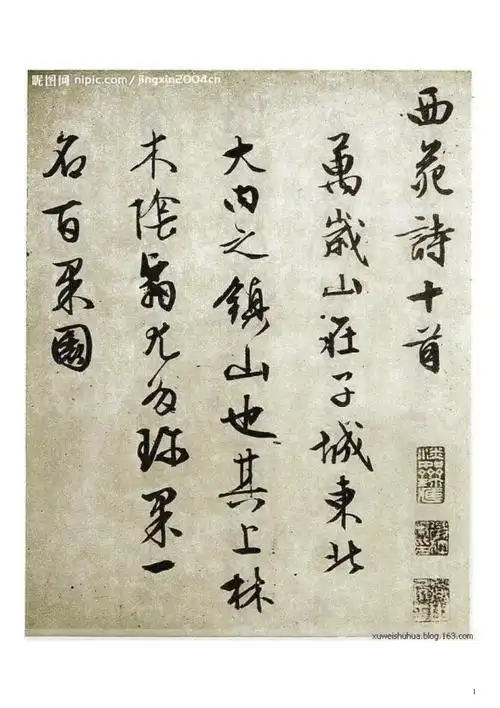 昵图网 nipic.com/jingxin2004cn
西苑詩十首
萬歲山在子城東北
大内之鎮山也其上林
木陰翳尤多珎果一
名百果園
xuweishuhua.blog.163.com
1